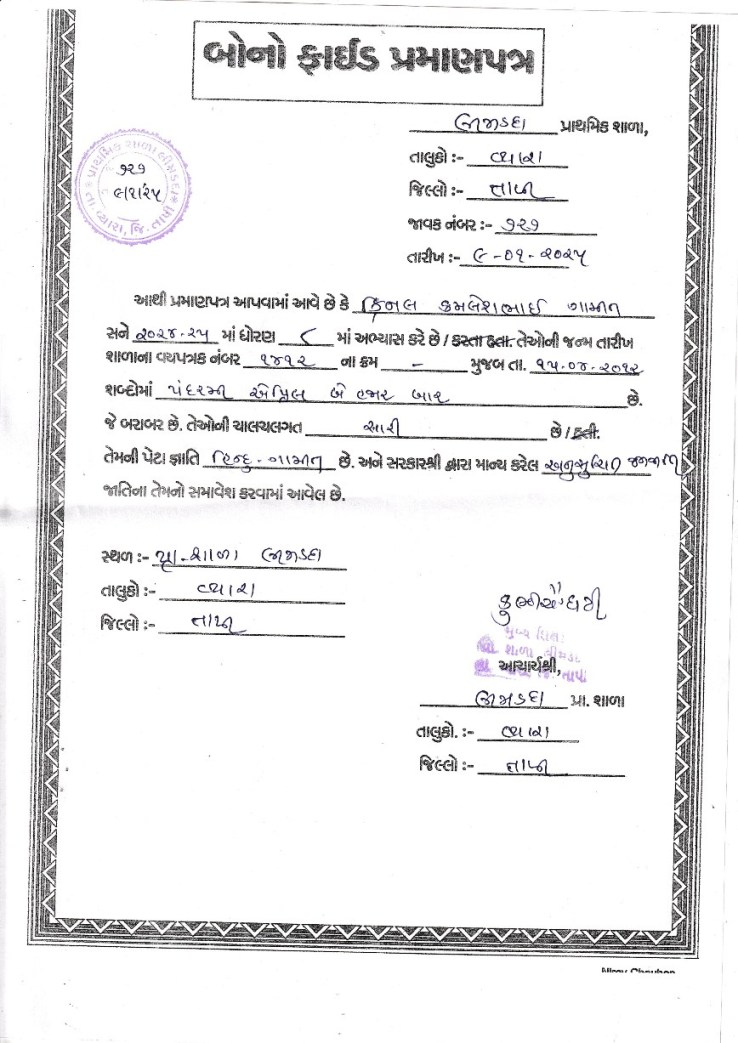 બોનો ફાઈડ પ્રમાણપત્ર
લીમડદા પ્રાથમિક શાળા,
તાલુકો :- વ્યારા
જિલ્લો :- તાપી
જાવક નંબર :- ૧૨૧
તારીખ :- ૯-૦૧-૨૦૨૫
પ્રાથમિક શાળા લીમડદા
તા. વ્યારા, જિ. તાપી
૧૨૧
૯/૧/૨૫
આથી પ્રમાણપત્ર આપવામાં આવે છે કે કિનલ કમલેશભાઈ ગામીત
સને ૨૦૨૪-૨૫ માં ધોરણ ૮ માં અભ્યાસ કરે છે / કરતા હતા. તેઓની જન્મ તારીખ
શાળાના વયપત્રક નંબર ૧૪૧૨ ના ક્રમ - મુજબ તા. ૧૫-૦૪-૨૦૧૨
શબ્દોમાં પંદરમી એપ્રિલ બે હજાર બાર છે.
જે બરાબર છે. તેઓની ચાલચલગત સારી છે / હતી.
તેમની પેટા જ્ઞાતિ હિન્દુ-ગામીત છે. અને સરકારશ્રી દ્વારા માન્ય કરેલ અનુસુચિત જનજાતિ
જાતિના તેમનો સમાવેશ કરવામાં આવેલ છે.
સ્થળ :- પ્રા-શાળા લીમડદા
તાલુકો :- વ્યારા
જિલ્લો :- તાપી
મુખ્ય શિક્ષક
શાળા લીમડદા
જિ. તાપી
આચાર્યશ્રી,
લીમડદા પ્રા. શાળા
તાલુકો. :- વ્યારા
જિલ્લો :- તાપી